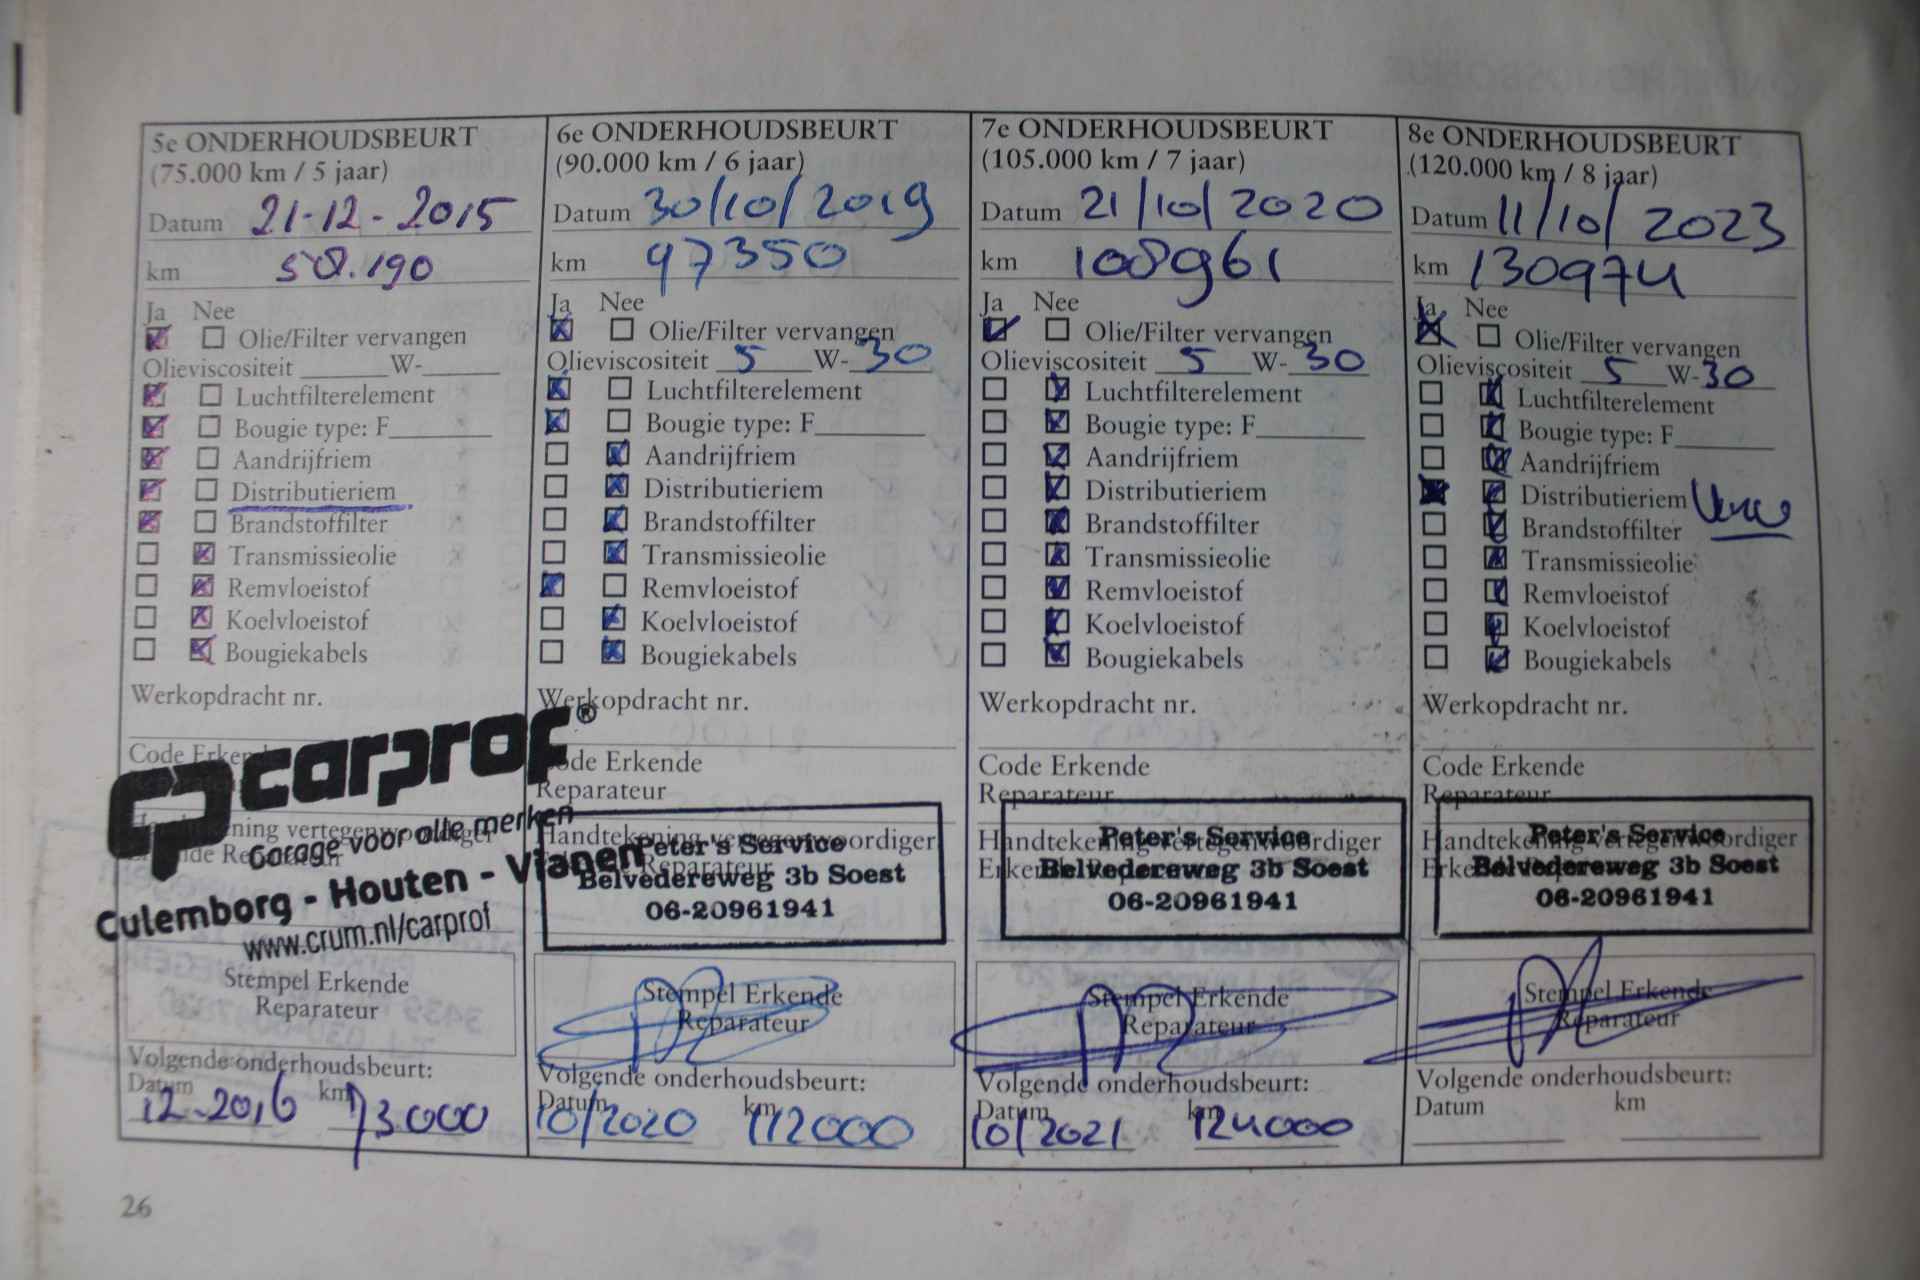 5e ONDERHOUDSBEURT
(75.000 km / 5 jaar)
Datum 21-12-2015
km 58.190
Ja Nee
Olie/Filter vervangen
Olieviscositeit W-
Luchtfilterelement
Bougie type: F
Aandrijfriem
Distributieriem
Brandstoffilter
Transmissieolie
Remvloeistof
Koelvloeistof
Bougiekabels
Werkopdracht nr.
Code
carprof®
Garage voor alle merken
Culemborg - Houten - Vianen
www.crum.nl/carprof
Stempel Erkende
Reparateur
Volgende onderhoudsbeurt:
Datum km
12-2016 73000
6e ONDERHOUDSBEURT
(90.000 km / 6 jaar)
Datum 30/10/2019
km 97350
Ja Nee
Olie/Filter vervangen
Olieviscositeit 5 W-30
Luchtfilterelement
Bougie type: F
Aandrijfriem
Distributieriem
Brandstoffilter
Transmissieolie
Remvloeistof
Koelvloeistof
Bougiekabels
Werkopdracht nr.
Code Erkende
Reparateur
Handtekening vertegenwoordiger
Reparateur
Peter's Service
Belvedereweg 3b Soest
06-20961941
Stempel Erkende
Reparateur
Volgende onderhoudsbeurt:
Datum km
10/2020 112000
7e ONDERHOUDSBEURT
(105.000 km / 7 jaar)
Datum 21/10/2020
km 108961
Ja Nee
Olie/Filter vervangen
Olieviscositeit 5 W-30
Luchtfilterelement
Bougie type: F
Aandrijfriem
Distributieriem
Brandstoffilter
Transmissieolie
Remvloeistof
Koelvloeistof
Bougiekabels
Werkopdracht nr.
Code Erkende
Reparateur
Handtekening vertegenwoordiger
Peter's Service
Belvedereweg 3b Soest
06-20961941
Stempel Erkende
Reparateur
Volgende onderhoudsbeurt:
Datum km
10/2021 124000
8e ONDERHOUDSBEURT
(120.000 km / 8 jaar)
Datum 11/10/2023
km 130974
Ja Nee
Olie/Filter vervangen
Olieviscositeit 5 W-30
Luchtfilterelement
Bougie type: F
Aandrijfriem
Distributieriem
Brandstoffilter
Transmissieolie
Remvloeistof
Koelvloeistof
Bougiekabels
Werkopdracht nr.
Code Erkende
Reparateur
Handtekening vertegenwoordiger
Peter's Service
Belvedereweg 3b Soest
06-20961941
Stempel Erkende
Reparateur
Volgende onderhoudsbeurt:
Datum km
26